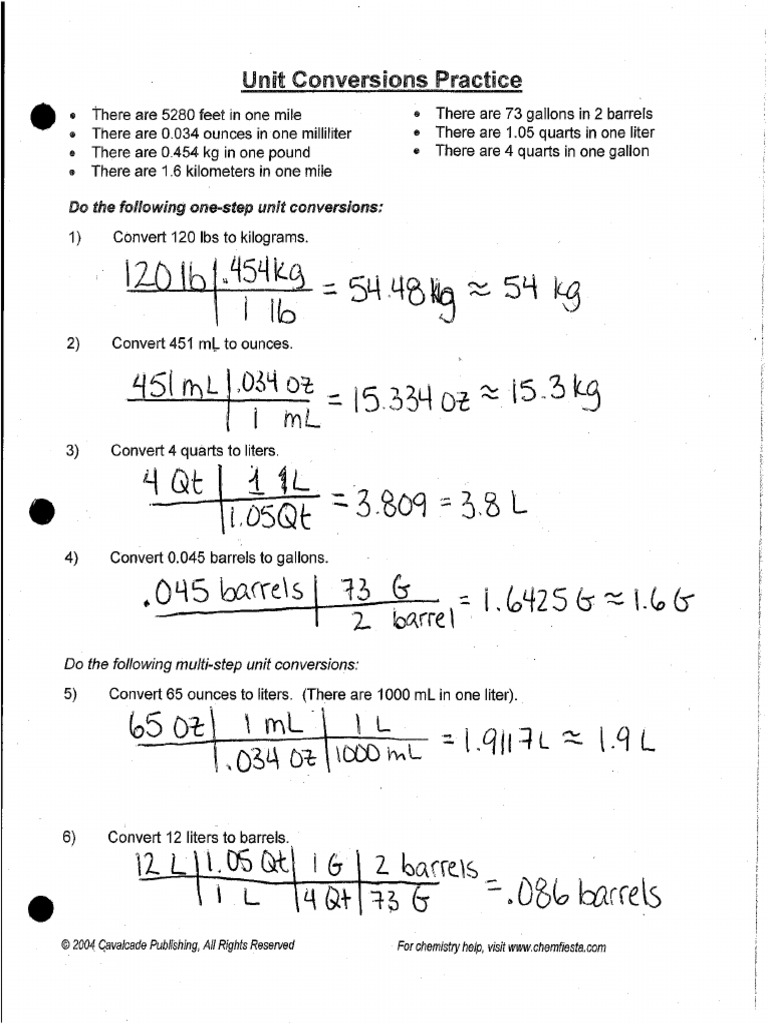 Unit Conversions Practice
• There are 5280 feet in one mile
• There are 0.034 ounces in one milliliter
• There are 0.454 kg in one pound
• There are 1.6 kilometers in one mile
• There are 73 gallons in 2 barrels
• There are 1.05 quarts in one liter
• There are 4 quarts in one gallon
Do the following one-step unit conversions:
1) Convert 120 lbs to kilograms.
120 lb | .454 kg
| 1 lb = 54.48 kg ≈ 54 kg
2) Convert 451 mL to ounces.
451 mL | .034 oz
| 1 mL = 15.334 oz ≈ 15.3 kg
3) Convert 4 quarts to liters.
4 Qt | 1 1L
| 1.05Qt = 3.809 = 3.8 L
4) Convert 0.045 barrels to gallons.
.045 barrels | 73 G
| 2 barrel = 1.6425 G ≈ 1.6 G
Do the following multi-step unit conversions:
5) Convert 65 ounces to liters. (There are 1000 mL in one liter).
65 oz | 1 mL | 1 L
| .034 oz | 1000 mL = 1.9117 L ≈ 1.9 L
6) Convert 12 liters to barrels.
12 L | 1.05 Qt | 1 G | 2 barrels
| 1 L | 4 Qt | 73 G = .086 barrels
© 2004 Cavalcade Publishing, All Rights Reserved
For chemistry help, visit www.chemfiesta.com